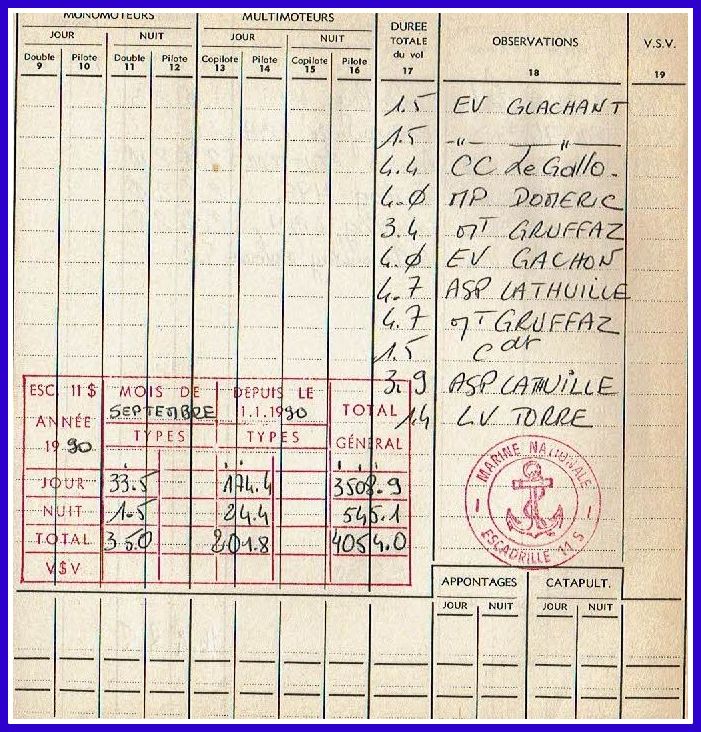 MONOMOTEURS MULTIMOTEURS DURÉE TOTALE du vol OBSERVATIONS V.S.V.
JOUR NUIT JOUR NUIT
Double Pilote Double Pilote Copilote Pilote Copilote Pilote
9 10 11 12 13 14 15 16 17 18 19
1.5 EV GLACHANT
1.5 -"- -"-
4.4 CC Le Gallo.
4.0 MP DOMERIC
3.4 MT GRUFFAZ
4.0 EV GACHON
4.7 ASP LATHUILLE
4.7 MT GRUFFAZ
1.5 Cdt
3.9 ASP LATHUILLE
1.4 LV TORRE
ESC. 11 S MOIS DE SEPTEMBRE DEPUIS LE 1.1.1990 TOTAL GÉNÉRAL
ANNÉE 1990 TYPES TYPES
JOUR 33.5 174.4 3508.9
NUIT 1.5 24.4 545.1
TOTAL 35.0 201.8 4054.0
V$V
MARINE NATIONALE
ESCADRILLE 11 S
APPONTAGES CATAPULT.
JOUR NUIT JOUR NUIT